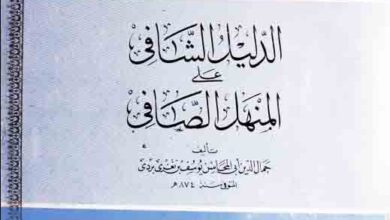 الدليل الشافي
على
المنهل الصافي
تأليف
جمال الدين أبي المحاسن يوسف بن تغري بردي
المتوفى سنة ٨٧٤ هـ